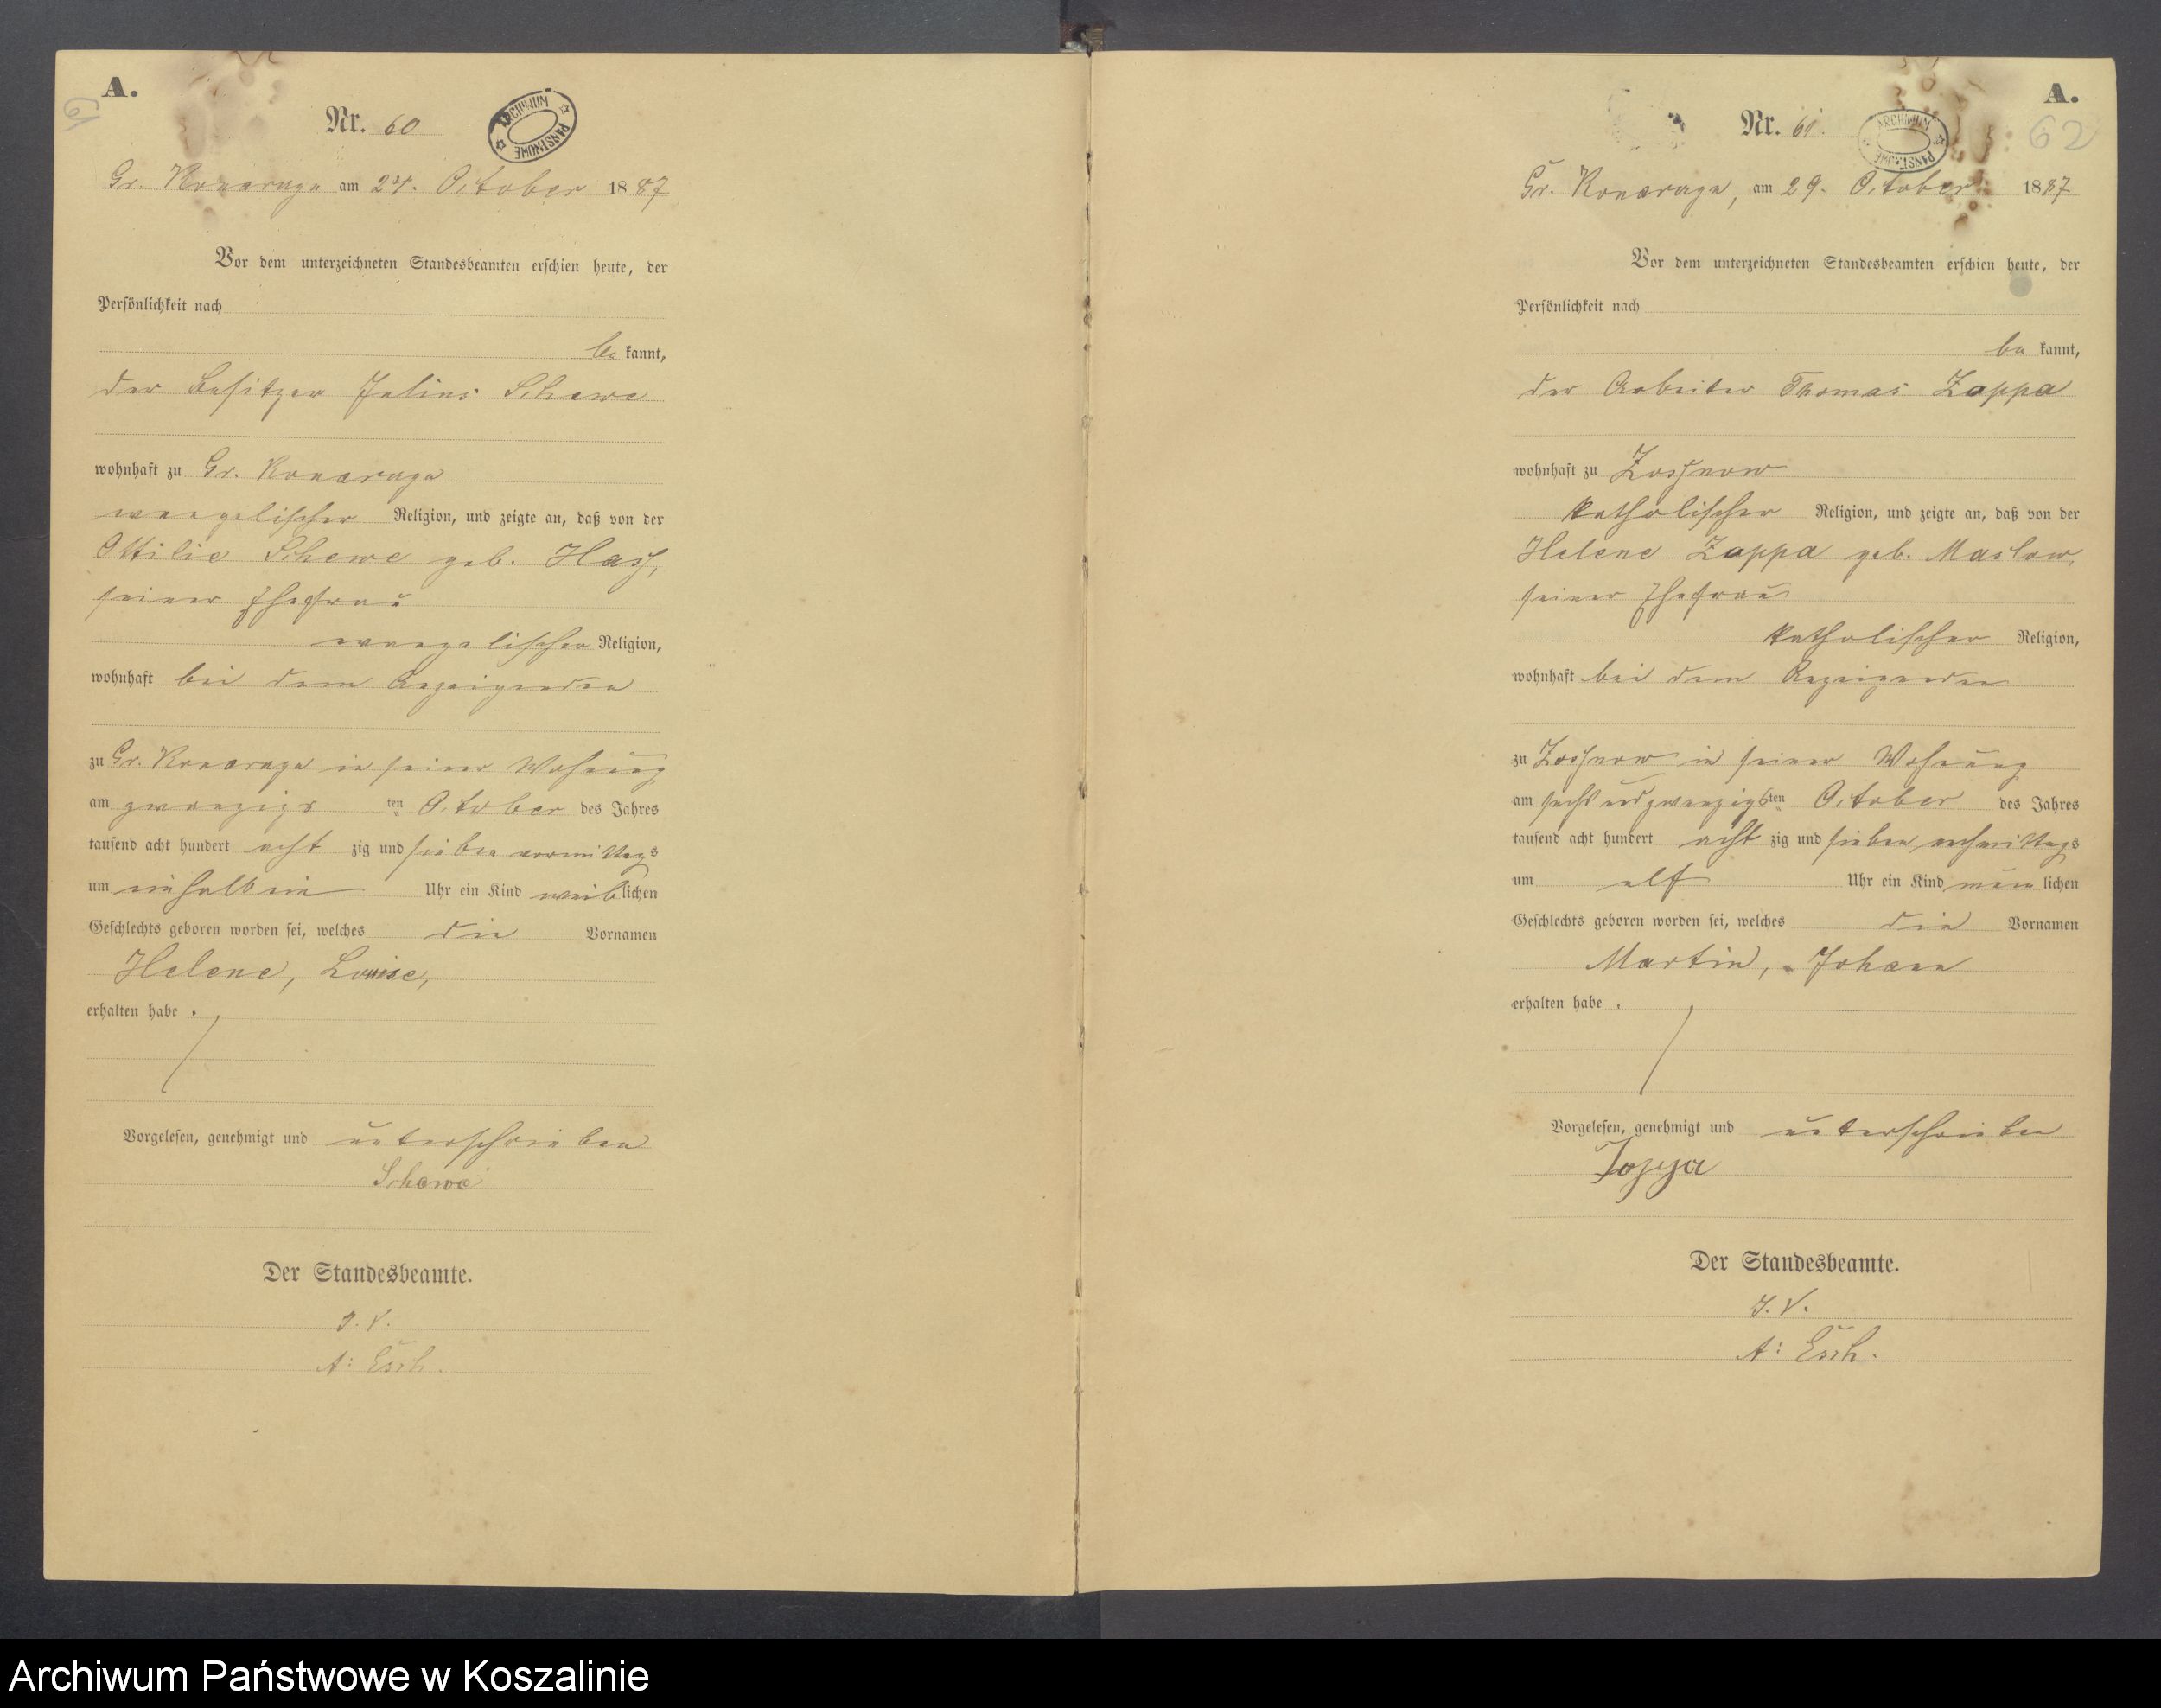 A.
61
Nr. 60
ARCHIWUM PAŃSTWOWE
Gr. Konarzyn am 24. October 1887
Vor dem unterzeichneten Standesbeamten erschien heute, der
Persönlichkeit nach
be kannt,
der Besitzer Julius Schewe
wohnhaft zu Gr. Konarzyn
evangelischer Religion, und zeigte an, daß von der
Ottilie Schewe geb. Hass,
seiner Ehefrau
evangelischer Religion,
wohnhaft bei dem Anzeigenden
zu Gr. Konarzyn in seiner Wohnung
am zwanzigs ten October des Jahres
tausend acht hundert acht zig und sieben vormittags
um einhalb ein Uhr ein Kind weiblichen
Geschlechts geboren worden sei, welches die Vornamen
Helene, Louise,
erhalten habe .
Vorgelesen, genehmigt und unterschrieben
Schewe
Der Standesbeamte.
J. V.
A: Esch.
A.
62
Nr. 61.
ARCHIWUM PAŃSTWOWE
Gr. Konarzyn, am 29. October 1887
Vor dem unterzeichneten Standesbeamten erschien heute, der
Persönlichkeit nach
be kannt,
der Arbeiter Thomas Zappa
wohnhaft zu Zossnow
katholischer Religion, und zeigte an, daß von der
Helene Zappa geb. Maslow,
seiner Ehefrau
katholischer Religion,
wohnhaft bei dem Anzeigenden
zu Zossnow in seiner Wohnung
am sechsundzwanzigsten October des Jahres
tausend acht hundert acht zig und sieben nachmittags
um elf Uhr ein Kind männ lichen
Geschlechts geboren worden sei, welches die Vornamen
Martin, Johann
erhalten habe .
Vorgelesen, genehmigt und unterschrieben
Der Standesbeamte.
J. V.
A: Esch.
Archiwum Państwowe w Koszalinie